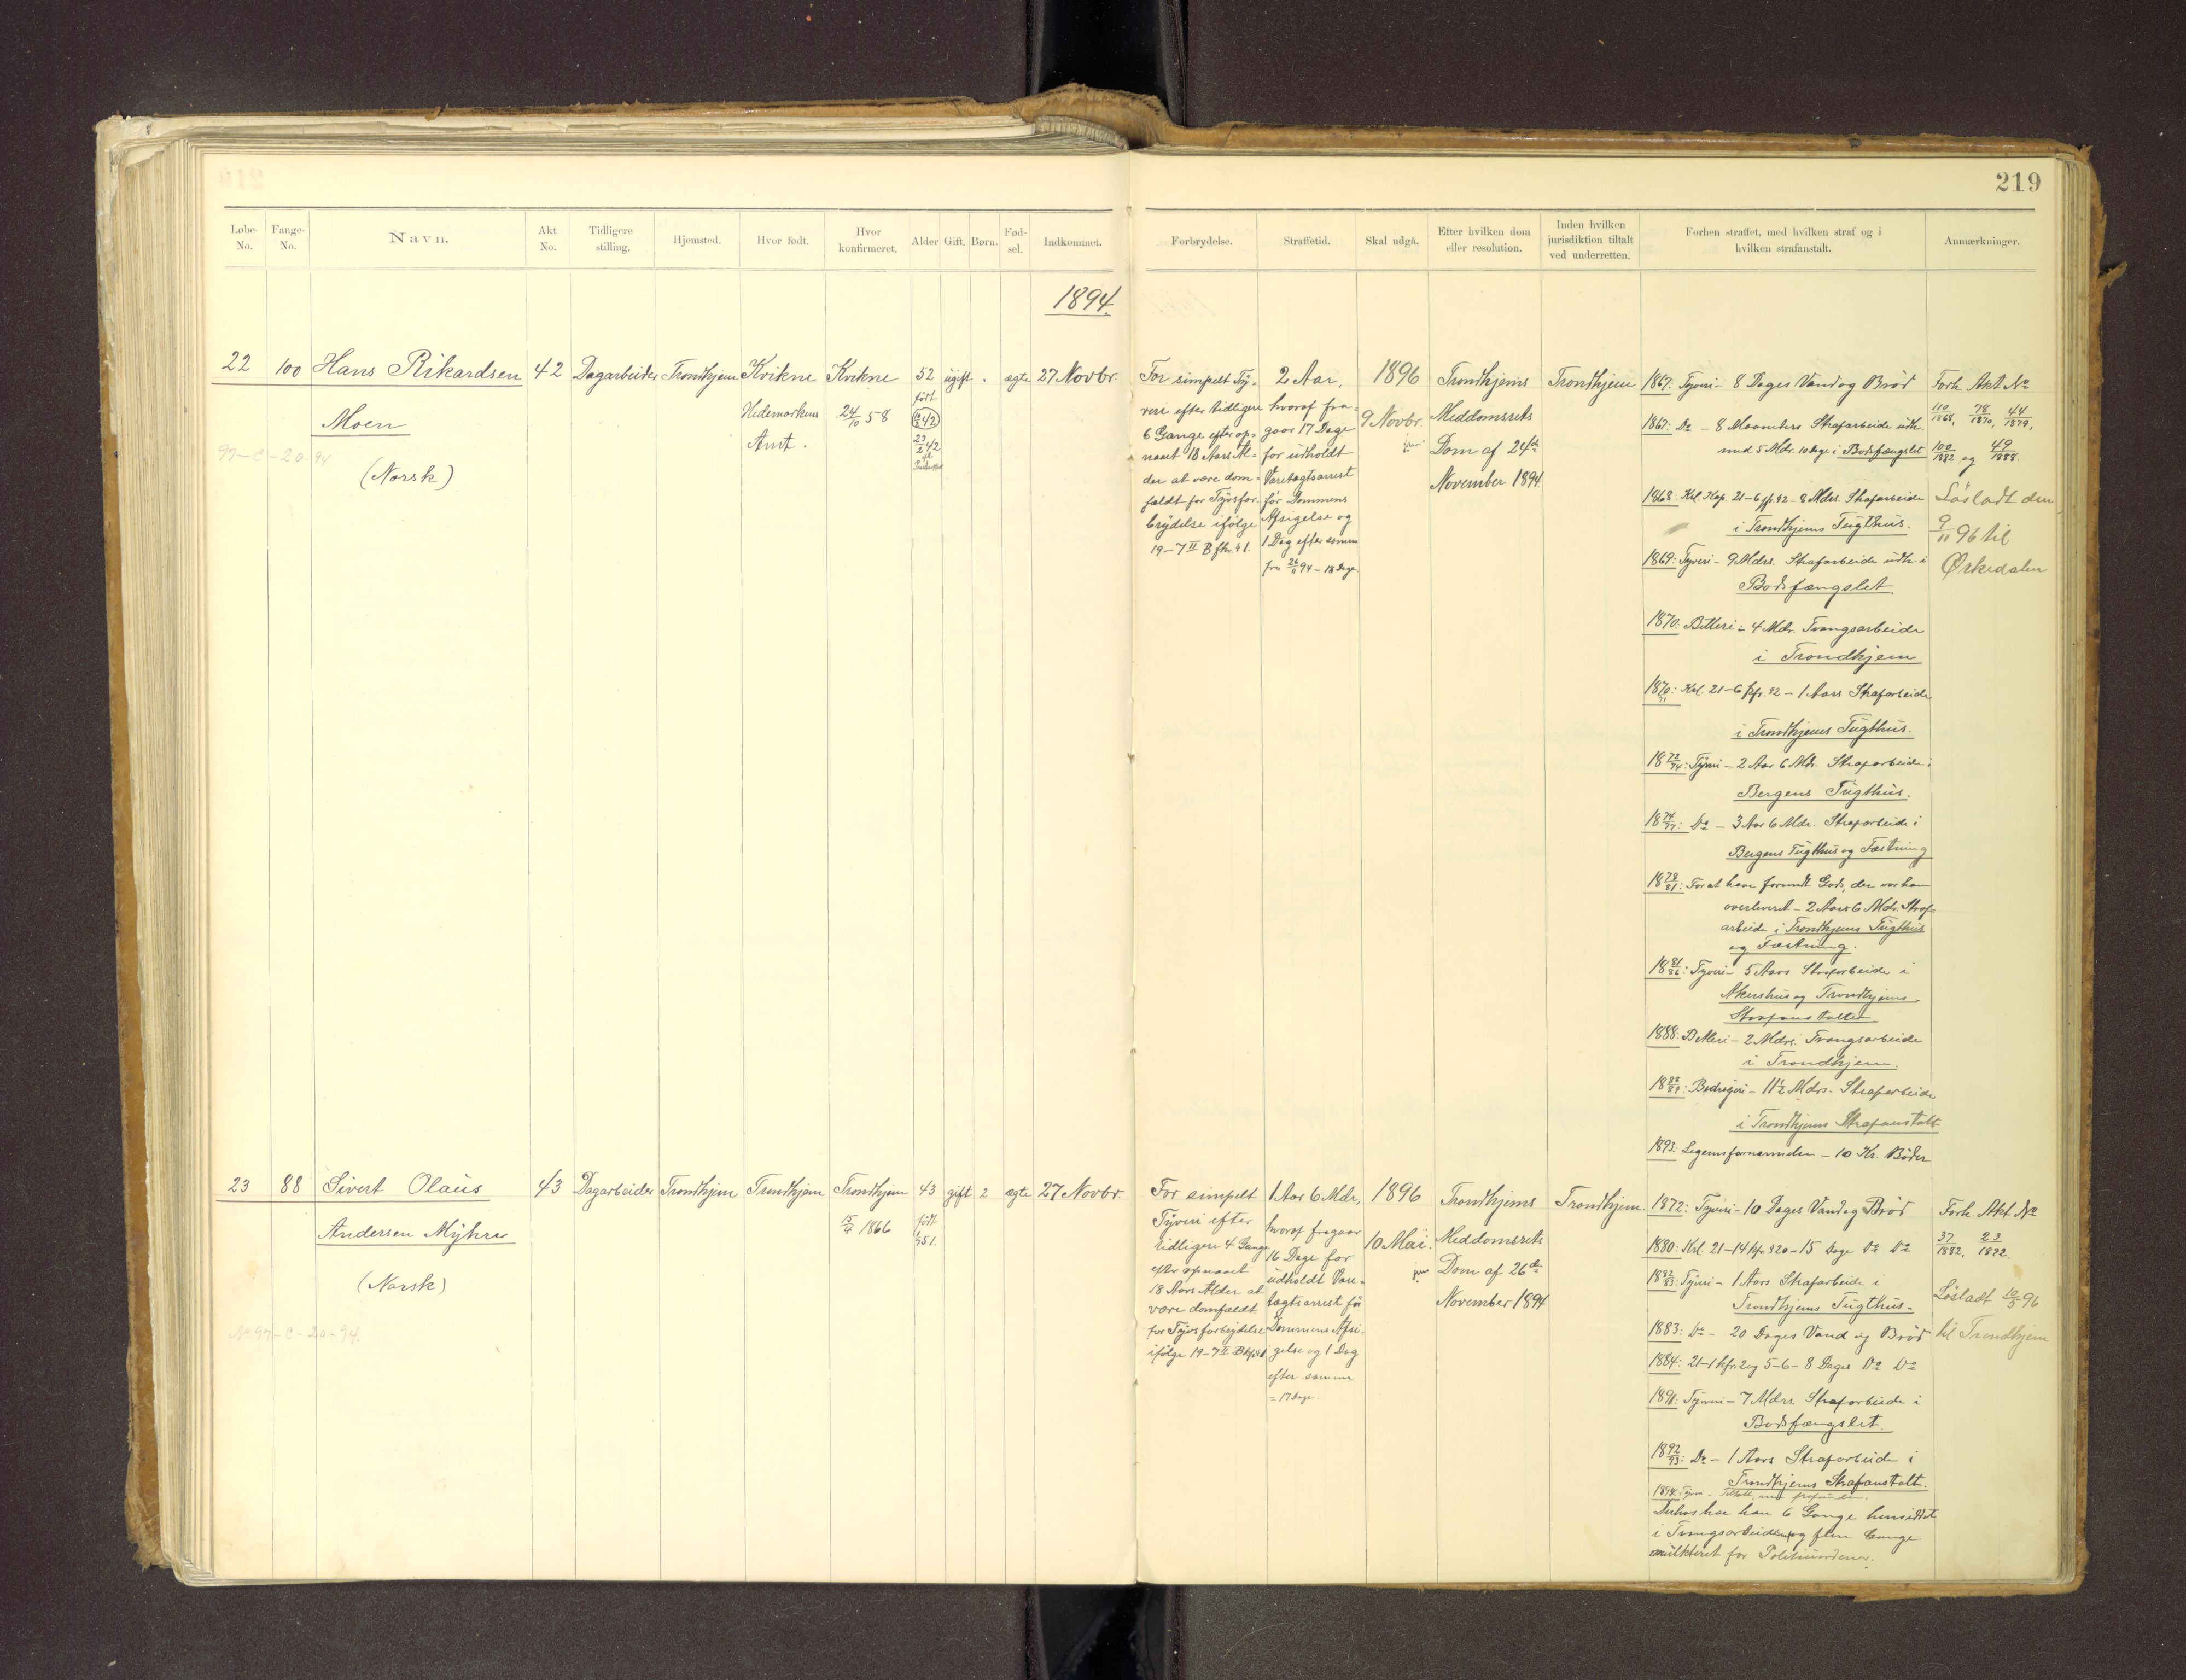 219
Løbe-No.
Fange-No.
Navn.
Akt No.
Tidligere stilling.
Hjemsted.
Hvor født.
Hvor konfirmeret.
Alder
Gift.
Børn.
Fød-sel.
Indkommet.
Forbrydelse.
Straffetid.
Skal udgå.
Efter hvilken dom eller resolution.
Inden hvilken jurisdiktion tiltalt ved underretten.
Forhen straffet, med hvilken straf og i hvilken strafanstalt.
Anmærkninger.
1894.
22
100
Hans Rikardsen
Moen
(Norsk)
97-C-20-94
42
Dagarbeider
Trondhjem
Kvikne
Hedemarkens
Amt.
Kvikne
24/10 58
52
født
23/2 42
ugift
ægte
27 Novbr.
For simpelt Ty-
veri efter tidligere
6 Gange efter op-
naaet 18 Aars Al-
der at være dom-
fældt for Tyvsfor-
brydelse ifølge
19-7 II B
2 Aar,
hvoraf fra-
gaar 17 Dage
for udholdt
Varetægtsarrest
før Dommens
Afsigelse og
1 Dag efter samme
fra 26/11 94 = 18 Dage
1896
9 Novbr.
Trondhjems
Meddomsrets
Dom af 24de
November 1894
Trondhjem
1867: Tyveri - 8 Dages Vand og Brød
1867: Do - 8 Maaneders Strafarbeide udh.
med 5 Mdr. 10 Dage i Bodsfængslet
1868: Krl. Kap. 21-6 jfr. 42 - 8 Mdrs. Strafarbeide
i Trondhjems Tugthus.
1869: Tyveri - 9 Mdrs. Strafarbeide udh. i
Bodsfængslet.
1870: Betleri - 4 Mdr. Tvangsarbeide
i Trondhjem
1870/71: Krl. 21-6 jfr. 42 - 1 Aars Strafarbeide
i Trondhjems Tugthus.
1872/74: Tyveri - 2 Aar 6 Mdr. Strafarbeide i
Bergens Tugthus.
1874/77: Do - 3 Aar 6 Mdr. Strafarbeide i
Bergens Tugthus og Fæstning
1878/81: For at have forvendt Gods, der var ham
overleveret - 2 Aars 6 Mdr. Straf-
arbeide i Trondhjems Tugthus
og Fæstning.
1881/86: Tyveri - 5 Aars Strafarbeide i
Akershus og Trondhjems
Strafanstalter
1888: Betleri - 2 Mdrs. Tvangsarbeide
i Trondhjem.
1888/89: Bedrageri - 11 1/2 Mdrs. Strafarbeide
i Trondhjems Strafanstalt
1893: Legemsfornærmelse - 10 Kr. Bøder
Forh. Akt No
110/1868, 78/1870, 44/1879,
100/1882 og 49/1888.
Løsladt den
9/11 96 til
Ørkedalen
23
88
Sivert Olaus
Andersen Myhre
(Norsk)
No 97-C-20-94.
43
Dagarbeider
Trondhjem
Trondhjem
Trondhjem
1866
43
født
gift
2
ægte
27 Novbr.
For simpelt
Tyveri efter
tidligere 4 Gange
efter opnaaet
18 Aars Alder at
være domfældt
for Tyvsforbrydelse
ifølge 19-7 II B
1 Aar 6 Mdr,
hvoraf fragaar
16 Dage for
udholdt Vare-
tægtsarrest før
Dommens Afsi-
gelse og 1 Dag
efter samme
= 17 Dage.
1896
10 Mai.
Trondhjems
Meddomsrets
Dom af 26de
November 1894
Trondhjem.
1872: Tyveri - 10 Dages Vand og Brød
1880: Krl. 21-14 jfr. 20 - 15 Dage Do Do
1882/83: Tyveri - 1 Aars Strafarbeide i
Trondhjems Tugthus.
1883: Do - 20 Dages Vand og Brød
1884: 21-1 jfr. 2 og 5-6-8 Dages Do Do
1891: Tyveri - 7 Mdrs. Strafarbeide i
Bodsfængslet.
1892/93: Do - 1 Aars Strafarbeide i
Trondhjems Strafanstalt.
1894: Tyveri - Tiltalt, men frifunden.
Desuden har han 6 Gange hensiddet
i Tvangsarbeide og flere Gange
mulkteret for Politiuordener.
Forh. Akt No
37/1882, 23/1892.
Løsladt 10/5 96
til Trondhjem